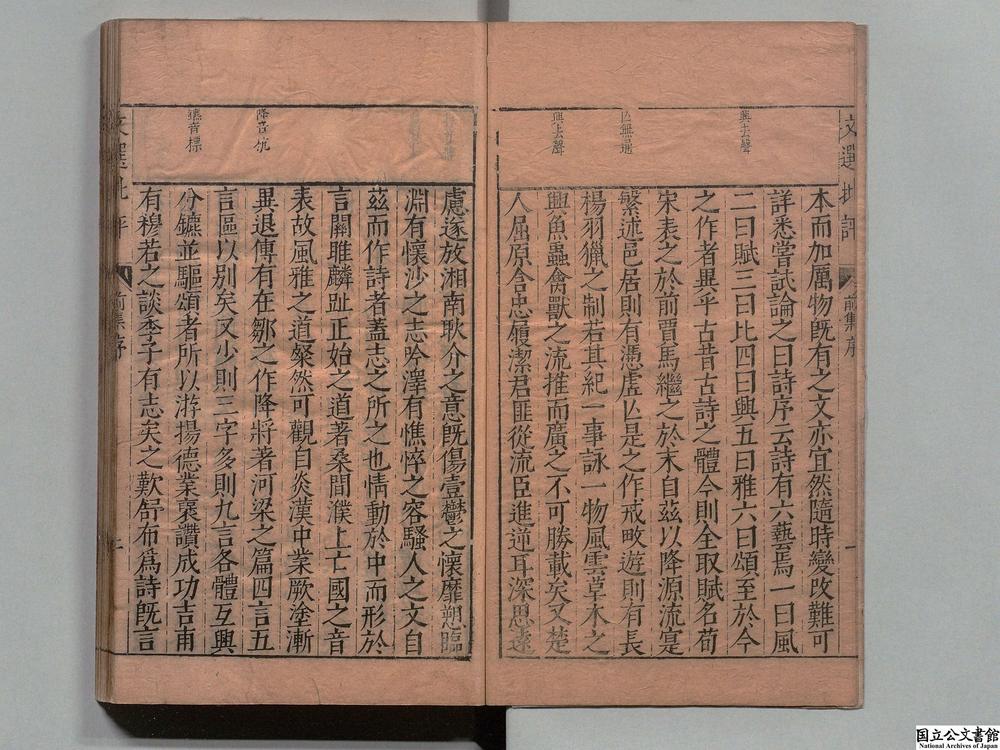 文選批評
前集序
一
興去聲
亾無通
興去聲
本而加厲物既有之文亦宜然隨時變改難可
詳悉嘗試論之曰詩序云詩有六藝焉一曰風
二曰賦三曰比四曰興五曰雅六曰頌至於今
之作者異乎古昔古詩之體今則全取賦名荀
宋表之於前賈馬繼之於末自茲以降源流寔
繁述邑居則有憑虛亾是之作戒畋遊則有長
楊羽獵之制若其紀一事詠一物風雲草木之
興魚蟲禽獸之流推而廣之不可勝載矣又楚
人屈原含忠履潔君匪從流臣進逆耳深思遠
慮遂放湘南耿介之意既傷壹鬱之懷靡愬臨
淵有懷沙之志吟澤有憔悴之容騷人之文自
茲而作詩者蓋志之所之也情動於中而形於
言關雎麟趾正始之道著桑間濮上亡國之音
表故風雅之道粲然可觀自炎漢中業厥塗漸
異退傅有在鄒之作降將著河梁之篇四言五
言區以別矣又少則三字多則九言各體互興
分鑣並驅頌者所以游揚德業襃讚成功吉甫
有穆若之談季子有至矣之歎舒布爲詩既言
降音杭
鑣音標
文選批評
前集序
国立公文書館
National Archives of Japan